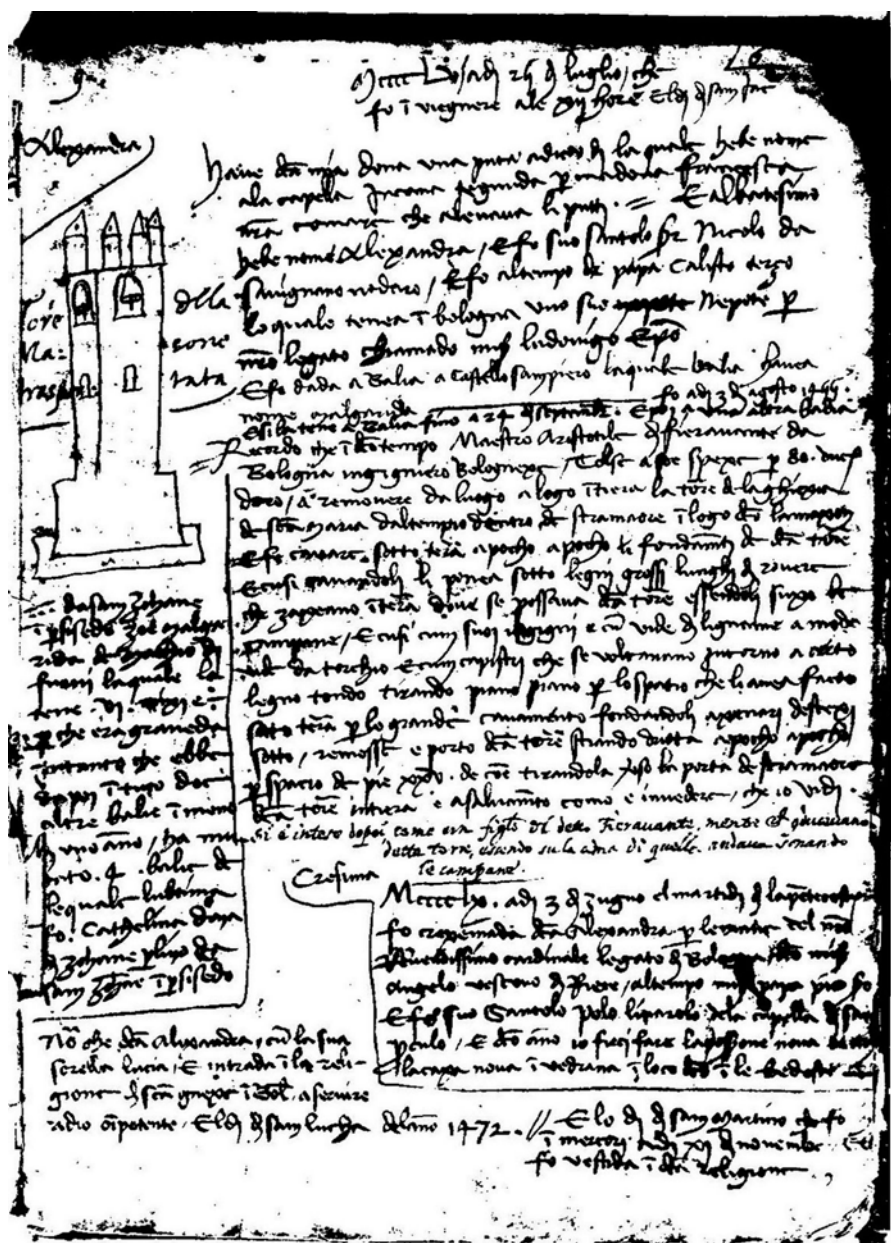 Mcccc Lv adi 25 d luglio, che
fo i viegnere ale xij hore E l di d san Jac
Alexandra
have dta mia dona una puta adiedo d la quale hebe nome
ala capela Jacoma seguida p madona francesca
nra comare che alevava li putti = E al batesimo
hebe nome Alexandra, E fo suo santolo Ser Nicolo da
savignano nodaro, E fo al tempo de papa Calisto terço
lo quale tenea i bologna uno suo nepote p
nro legato chiamado mis ludovigo Epo
E fo dada a Balia a Castello sampiero la quale balia havea
nome malgarida fo adi 3 d agosto 1455.
E si la tene a Balia fino a 24 d septenbr. E poi a una altra badia
Tore
Ma-
traspor
della
sone
tata
Recordo che i dto tempo Maestro Aristotile d fieravante da
Bologna ingigniero Bolognexe, Tolse a soe spexe p
doro, a removere da luogo a logo itiera la tore de la ghiexia
de sta Maria dal tempio dentro de stramaore i logo dto la maxon
E fe cavare sotto tera a pocho a pocho li fondamti de dta tore
E cusi cavandoli li ponea sotto legni grossi lunghi d rovere
che zaxeano i tera dove se possava dta tore essendoli suxo le
campane, E cusi cum suoi igigni e cu vide d ligname a modo
vide da torchio E cum capistri che se voltavano intorno a certo
legno tondo tirando piano piano p lo spatio che li avea facto
soto tera p lo grande cavamento fondandoli
sotto, remosse e porto dta tore stando dritta a pocho a pocho
p spacio de pie xxxv. de coe tirandola verso la porta de stramaore
dta tore intiera e a salvamto como e invedere, che io vidi.
si è inteso dopoi come un figlo di detto Fieravante, mentre si conduceva
detta torre, essendo su la cima di quella, andava sonando
le campane.
da sam Zohane
i psisedo zoe malga
rida de
fuani la quale la
tene .VI. mixi e
p che era graveda
intanto che ebbe
dapoi i tuto doe
altre balie i meno
d uno ano, ha mu
tato .4. balie de
le quale lultima
fo. Cathelina dona
d Zohane plipo da
sam Zohane i psisedo
Cresima
Mcccclx. adi 3 d zugno el martidi d la pentecoste
fo crexemada dta Alexandra p le mane del nro
Reverendissimo cardinale legato d Bologna dto mis
angelo vescovo d Riete, al tempo papa pio 2o
E fo suo Santolo polo liparolo dela capella d san
pculo, E dto ano io fieci fare la possone nova
la caxa nova i vedrana i loco dto i le bedoste
No che dta Alexandra, cu la sua
serella lucia, E intrada i la reli-
gione d sta gnexe i Bol. a servire
a dio oipotente, El di d sam lucha delano 1472. // E lo di d sam Martino che fo
i mercori adi xi d novembre
fo vestida i dta Religione